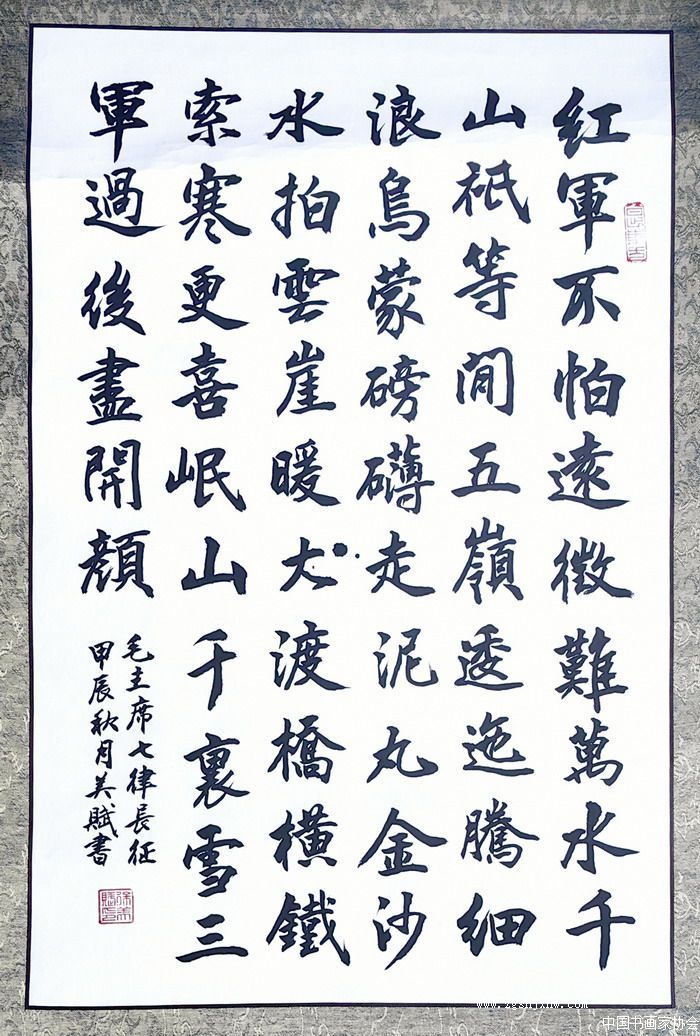 紅軍不怕遠徵難萬水千
山祇等閒五嶺逶迤騰細
浪烏蒙磅礴走泥丸金沙
水拍雲崖暖大渡橋橫鐵
索寒更喜岷山千裏雪三
軍過後盡開顏
毛主席七律長征
甲辰秋月美賦書
中国书画家协会